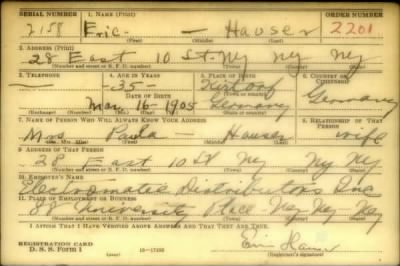 SERIAL NUMBER 1. NAME (Print) ORDER NUMBER
2158 Eric — Hauser 2201
(First) (Middle) (Last)
2. ADDRESS (Print)
28 East 10 St. Ny Ny Ny
(Number and street or R. F. D. number) (Town) (County) (State)
3. TELEPHONE 4. AGE IN YEARS 5. PLACE OF BIRTH 6. COUNTRY OF CITIZENSHIP
— 35 —
DATE OF BIRTH (Town or county)
Mar 16 1905 Germany Germany
(Exchange) (Number) (Mo.) (Day) (Yr.) (State or country)
7. NAME OF PERSON WHO WILL ALWAYS KNOW YOUR ADDRESS 8. RELATIONSHIP OF THAT PERSON
Mrs Paula — Hauser wife
(Mr., Mrs., Miss) (First) (Middle) (Last)
9. ADDRESS OF THAT PERSON
28 East 10 St Ny Ny Ny
(Number and street or R. F. D. number) (Town) (County) (State)
10. EMPLOYER'S NAME
Electromatic Distributors Inc
11. PLACE OF EMPLOYMENT OR BUSINESS
88 University Place Ny Ny Ny
(Number and street or R. F. D. number) (Town) (County) (State)
I AFFIRM THAT I HAVE VERIFIED ABOVE ANSWERS AND THAT THEY ARE TRUE.
REGISTRATION CARD
D. S. S. Form 1 (Registrant's signature)